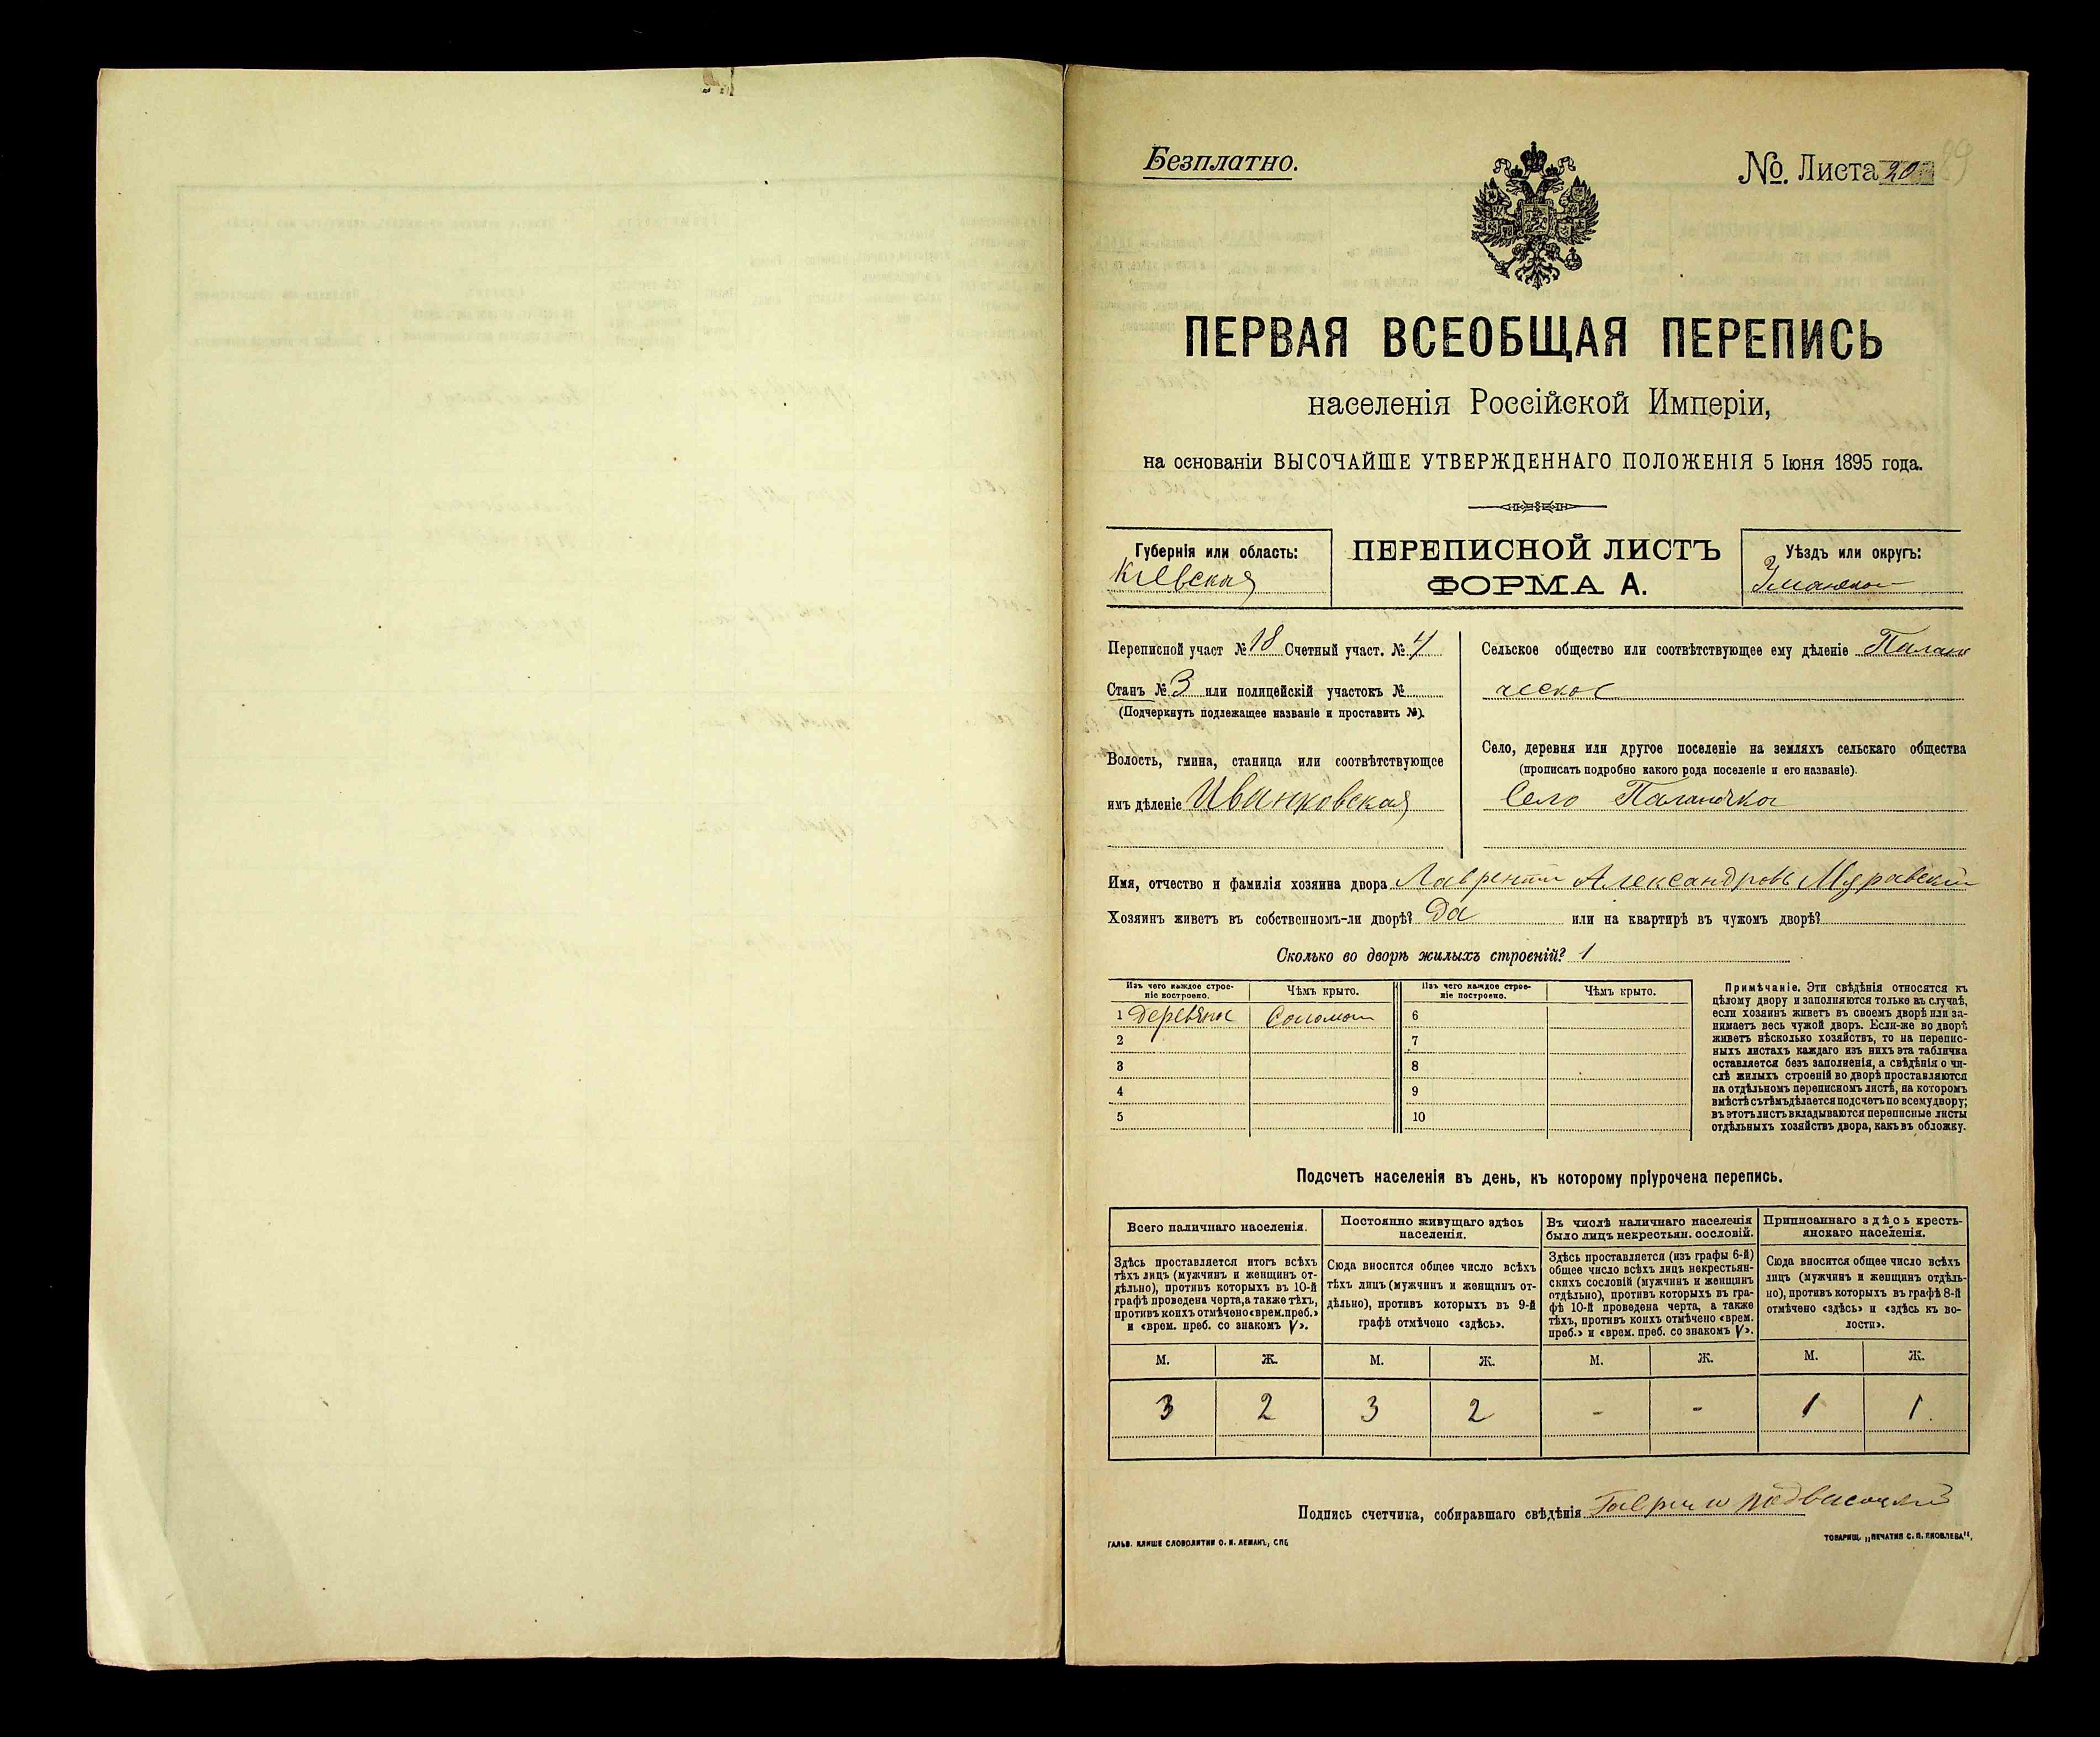 Безплатно.
№ Листа 20
ПЕРВАЯ ВСЕОБЩАЯ ПЕРЕПИСЬ
населенія Россійской Имперіи,
на основаніи ВЫСОЧАЙШЕ УТВЕРЖДЕННАГО ПОЛОЖЕНІЯ 5 Іюня 1895 года.
Губернія или область:
Кіевская
ПЕРЕПИСНОЙ ЛИСТЪ
ФОРМА А.
Уѣздъ или округъ:
Уманскій
Переписной участ № 18 Счетный участ. № 4
Станъ № 3 или полицейскій участокъ №
(Подчеркнуть подлежащее названіе и проставить №).
Волость, гмина, станица или соотвѣтствующее
имъ дѣленіе Ивинковская
Сельское общество или соотвѣтствующее ему дѣленіе Палан
ческое
Село, деревня или другое поселеніе на земляхъ сельскаго общества
(прописать подробно какого рода поселеніе и его названіе).
Село Паланочка
Имя, отчество и фамилія хозяина двора Лаврентій Александровъ Муравскій
Хозяинъ живетъ въ собственномъ-ли дворѣ? Да или на квартирѣ въ чужомъ дворѣ?
Сколько во дворѣ жилыхъ строеній? 1
Изъ чего каждое строе-
ніе построено.
Чѣмъ крыто.
Изъ чего каждое строе-
ніе построено.
Чѣмъ крыто.
1 деревяное Соломою 6
2 7
3 8
4 9
5 10
Примѣчаніе. Эти свѣдѣнія относятся къ
цѣлому двору и заполняются только въ случаѣ,
если хозяинъ живетъ въ своемъ дворѣ или за-
нимаетъ весь чужой дворъ. Если-же во дворѣ
живетъ нѣсколько хозяйствъ, то на перепис-
ныхъ листахъ каждаго изъ нихъ эта табличка
оставляется безъ заполненія, а свѣдѣнія о чи-
слѣ жилыхъ строеній во дворѣ проставляются
на отдѣльномъ переписномъ листѣ, на которомъ
вмѣстѣ съ тѣмъ дѣлается подсчетъ по всему двору;
въ этотъ листъ вкладываются переписные листы
отдѣльныхъ хозяйствъ двора, какъ въ обложку.
Подсчетъ населенія въ день, къ которому пріурочена перепись.
Всего наличнаго населенія.
Здѣсь проставляется итогъ всѣхъ
тѣхъ лицъ (мужчинъ и женщинъ от-
дѣльно), противъ которыхъ въ 10-й
графѣ проведена черта, а также тѣхъ,
противъ коихъ отмѣчено «врем. преб.»
и «врем. преб. со знакомъ V».
Постоянно живущаго здѣсь
населенія.
Сюда вносится общее число всѣхъ
тѣхъ лицъ (мужчинъ и женщинъ от-
дѣльно), противъ которыхъ въ 9-й
графѣ отмѣчено «здѣсь».
Въ числѣ наличнаго населенія
было лицъ некрестьян. сословій.
Здѣсь проставляется (изъ графы 6-й)
общее число всѣхъ лицъ некрестьян-
скихъ сословій (мужчинъ и женщинъ
отдѣльно), противъ которыхъ въ гра-
фѣ 10-й проведена черта, а также
тѣхъ, противъ коихъ отмѣчено «врем.
преб.» и «врем. преб. со знакомъ V».
Приписаннаго здѣсь кресть-
янскаго населенія.
Сюда вносится общее число всѣхъ
лицъ (мужчинъ и женщинъ отдѣль-
но), противъ которыхъ въ графѣ 8-й
отмѣчено «здѣсь» и «здѣсь къ во-
лости».
М. Ж. М. Ж. М. Ж. М. Ж.
3 2 3 2 - - 1 1
Подпись счетчика, собиравшаго свѣдѣнія
ГАЛЬВ. КЛИШЕ СЛОВОЛИТНИ О. И. ЛЕМАНЪ, СПБ
ТОВАРИЩ. „ПЕЧАТНЯ С. П. ЯКОВЛЕВА".